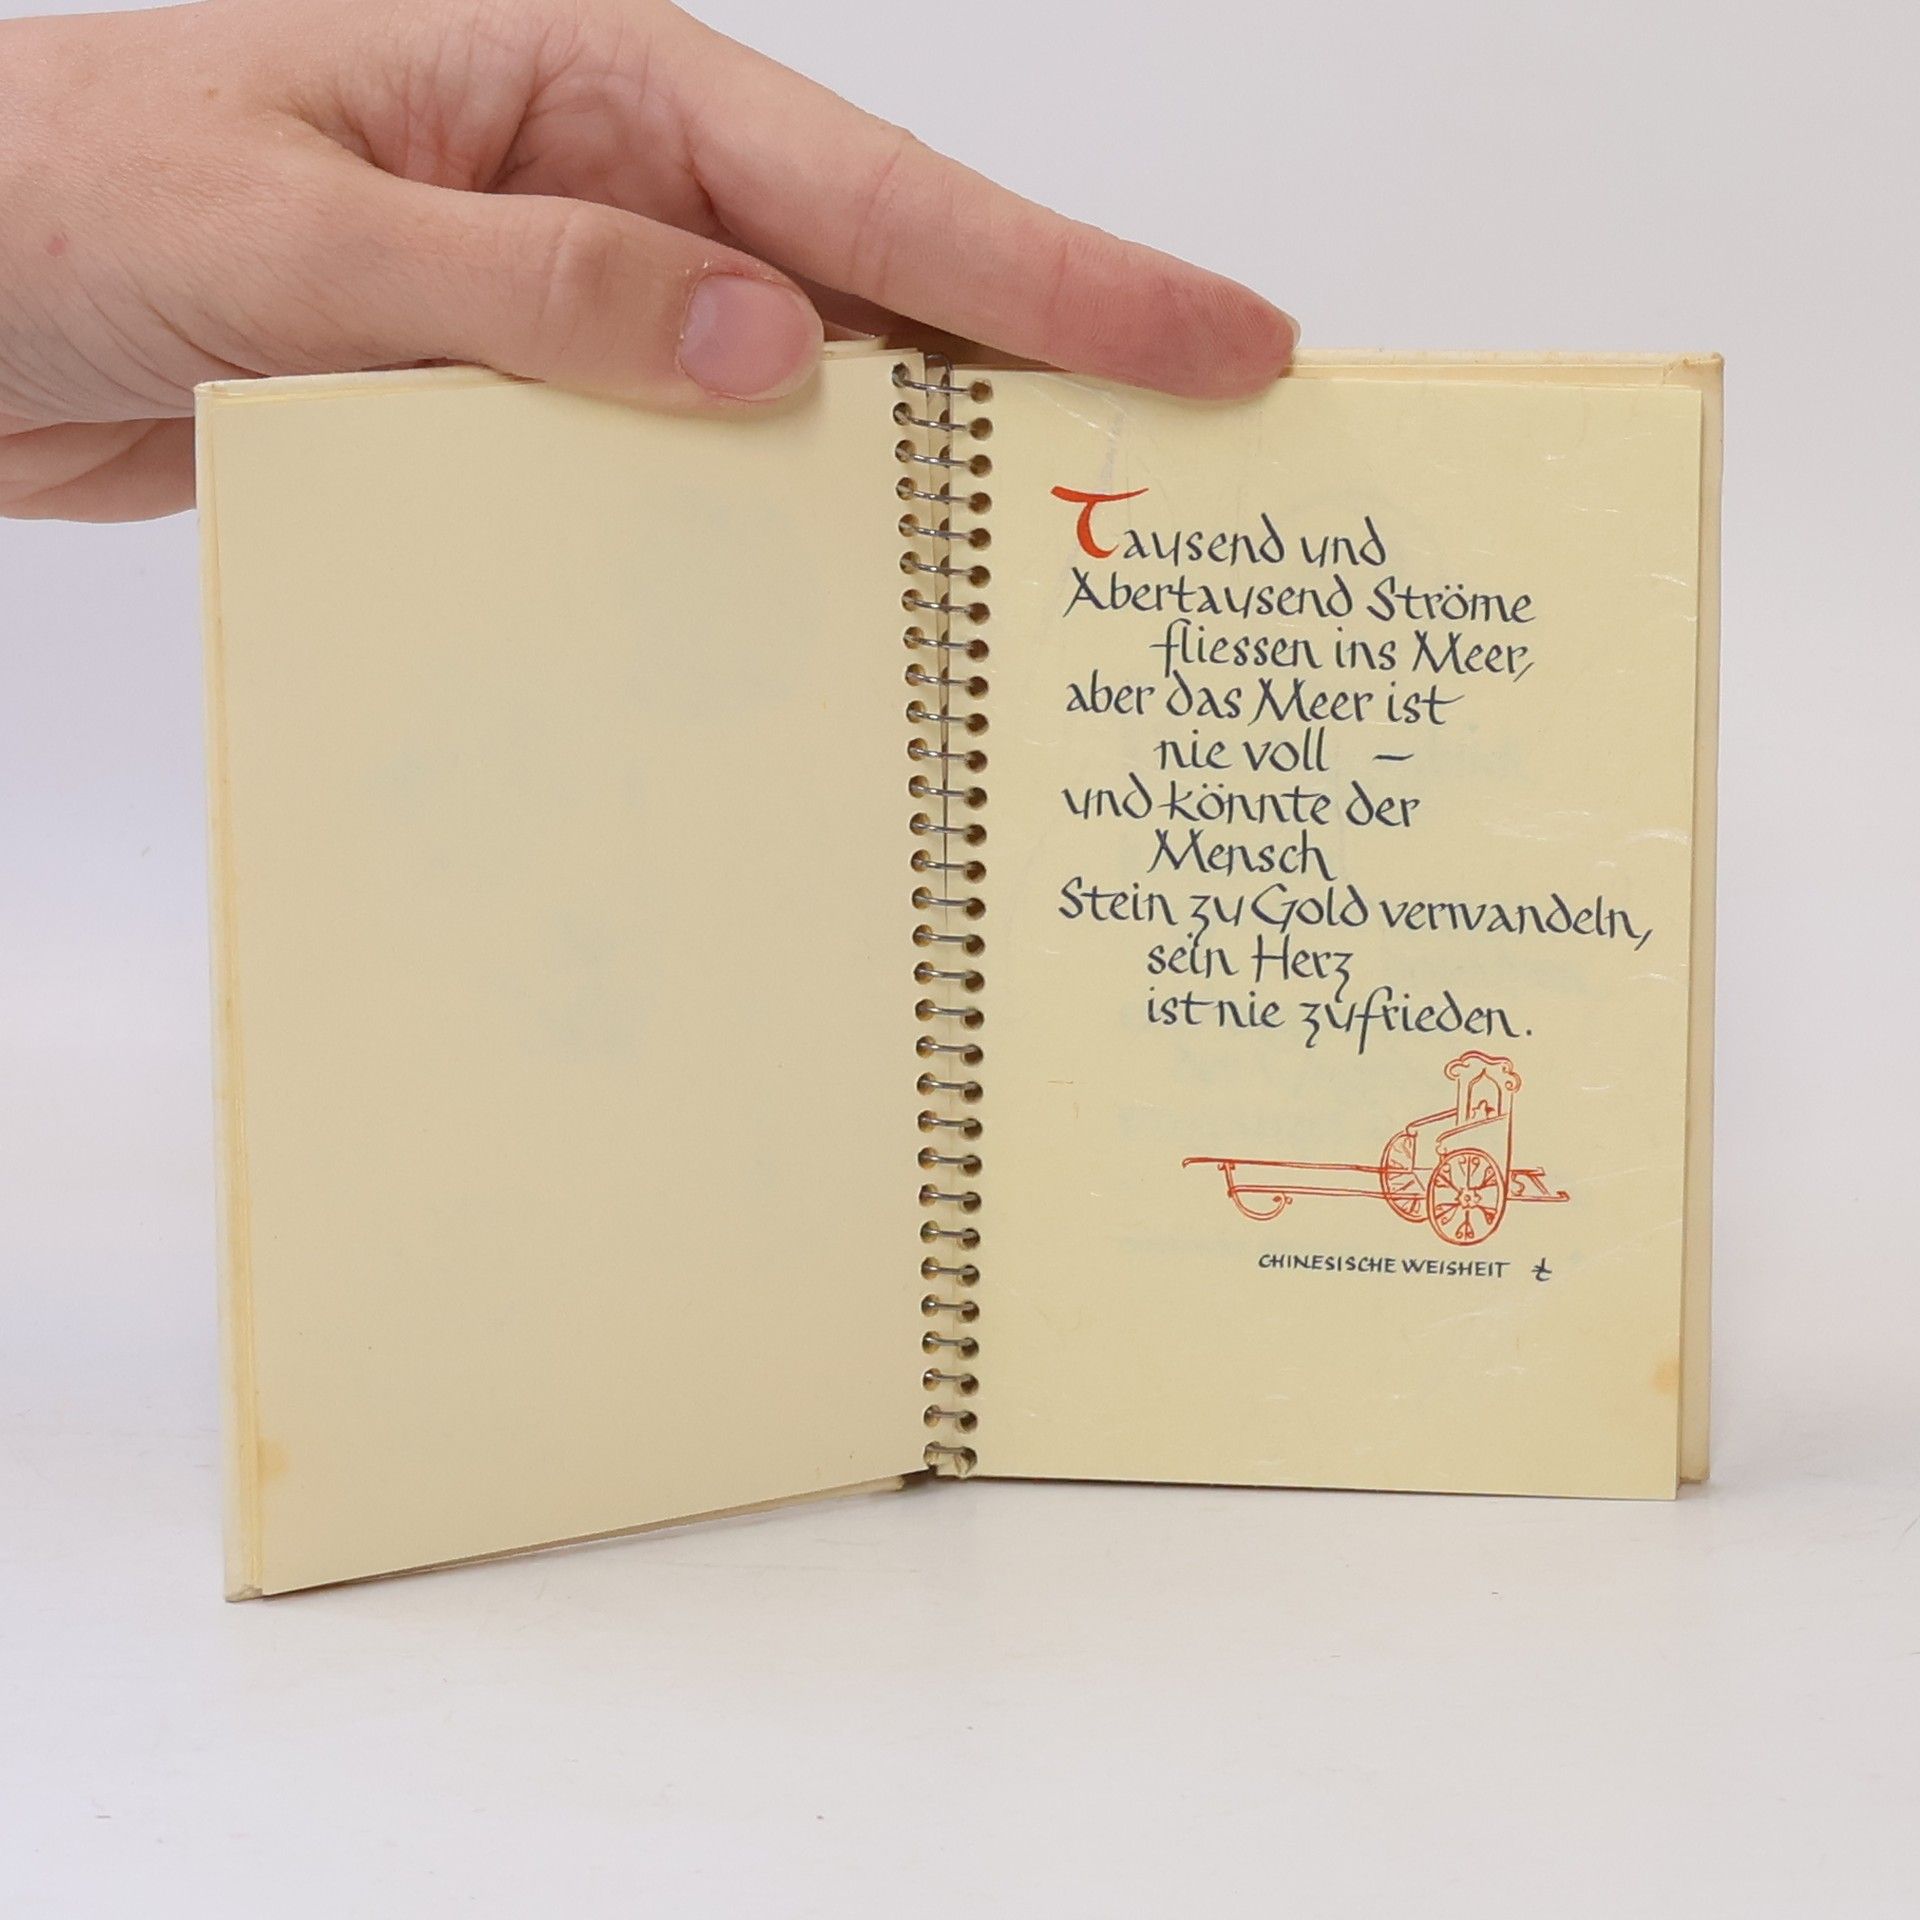 Tausend und
Abertausend Ströme
fliessen ins Meer,
aber das Meer ist
nie voll –
und könnte der
Mensch
Stein zu Gold verwandeln,
sein Herz
ist nie zufrieden.
CHINESISCHE WEISHEIT